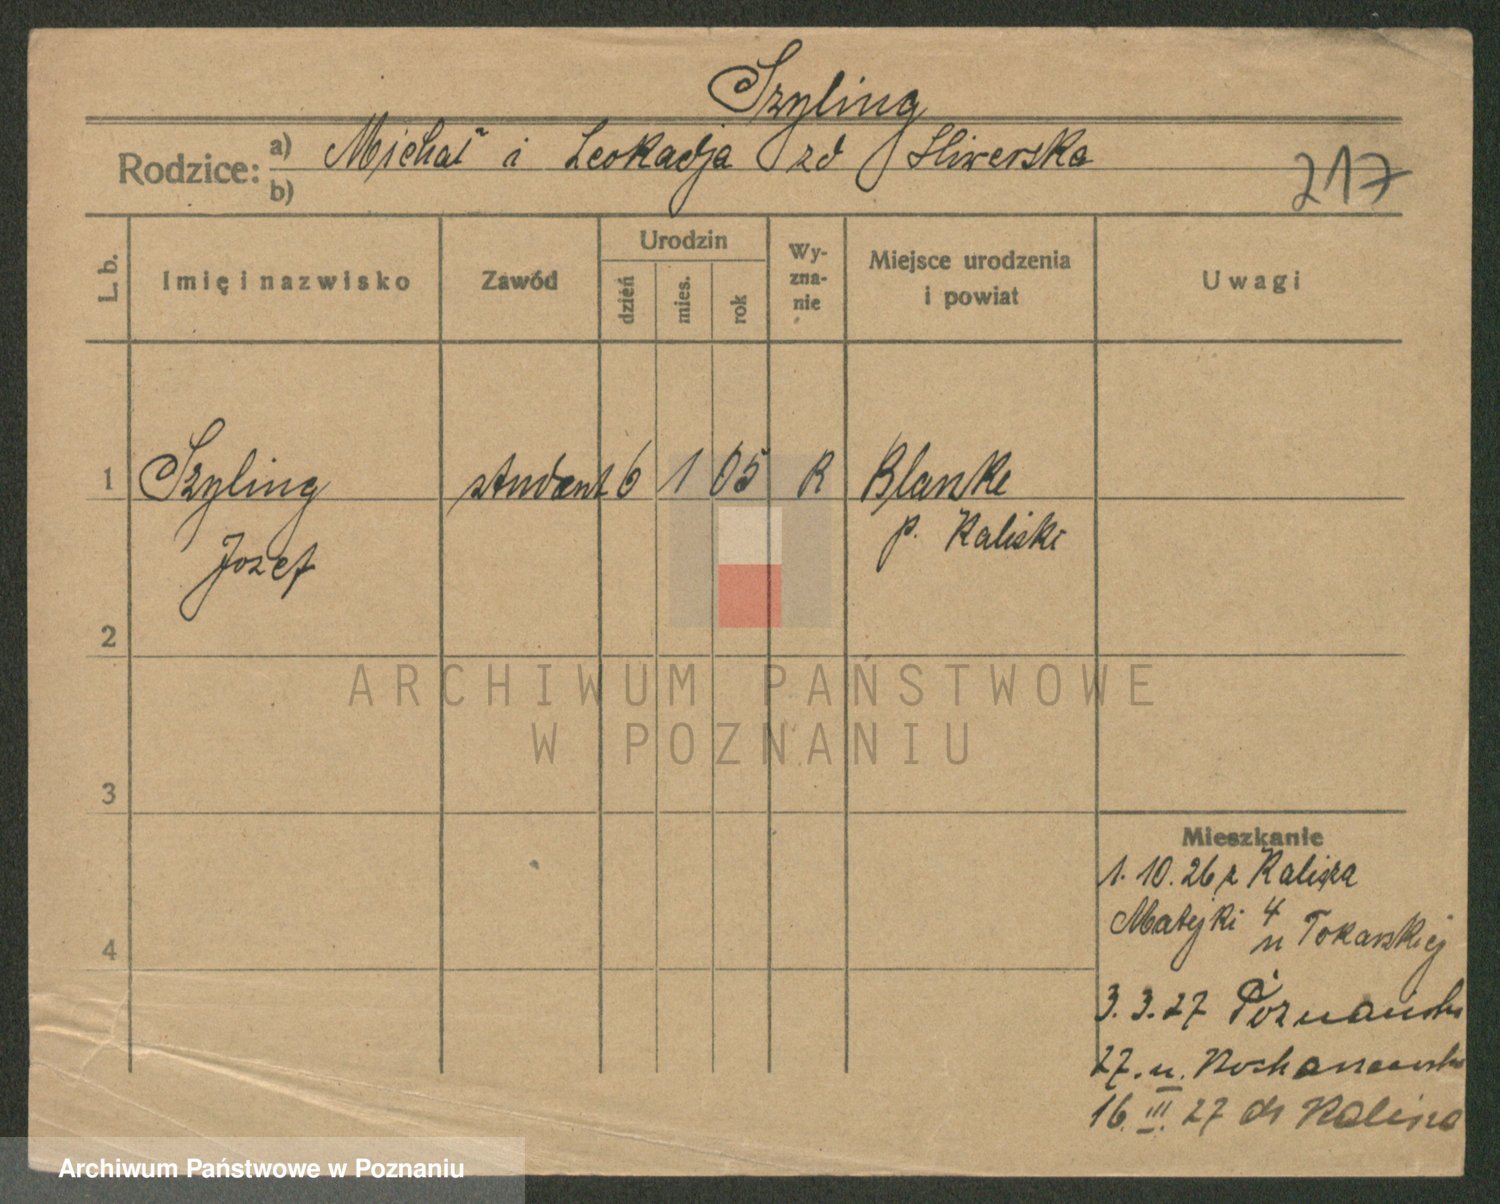 Szyling
Rodzice: a) Michał i Leokadja zd Sliwerska
b)
217
L. b.
Imię i nazwisko
Zawód
Urodzin
dzień
mies.
rok
Wy-
zna-
nie
Miejsce urodzenia
i powiat
Uwagi
1 Szyling student 6 1 05 R Blaszki
Jozef p. Kaliski
2
3
4
ARCHIWUM PAŃSTWOWE
W POZNANIU
Mieszkanie
1. 10. 26 z Kalisza
Matejki 4
u Tokarskiej
3. 3. 27 Poznańska
27. u. Kochanowska
16. III. 27 do Kalisza
Archiwum Państwowe w Poznaniu